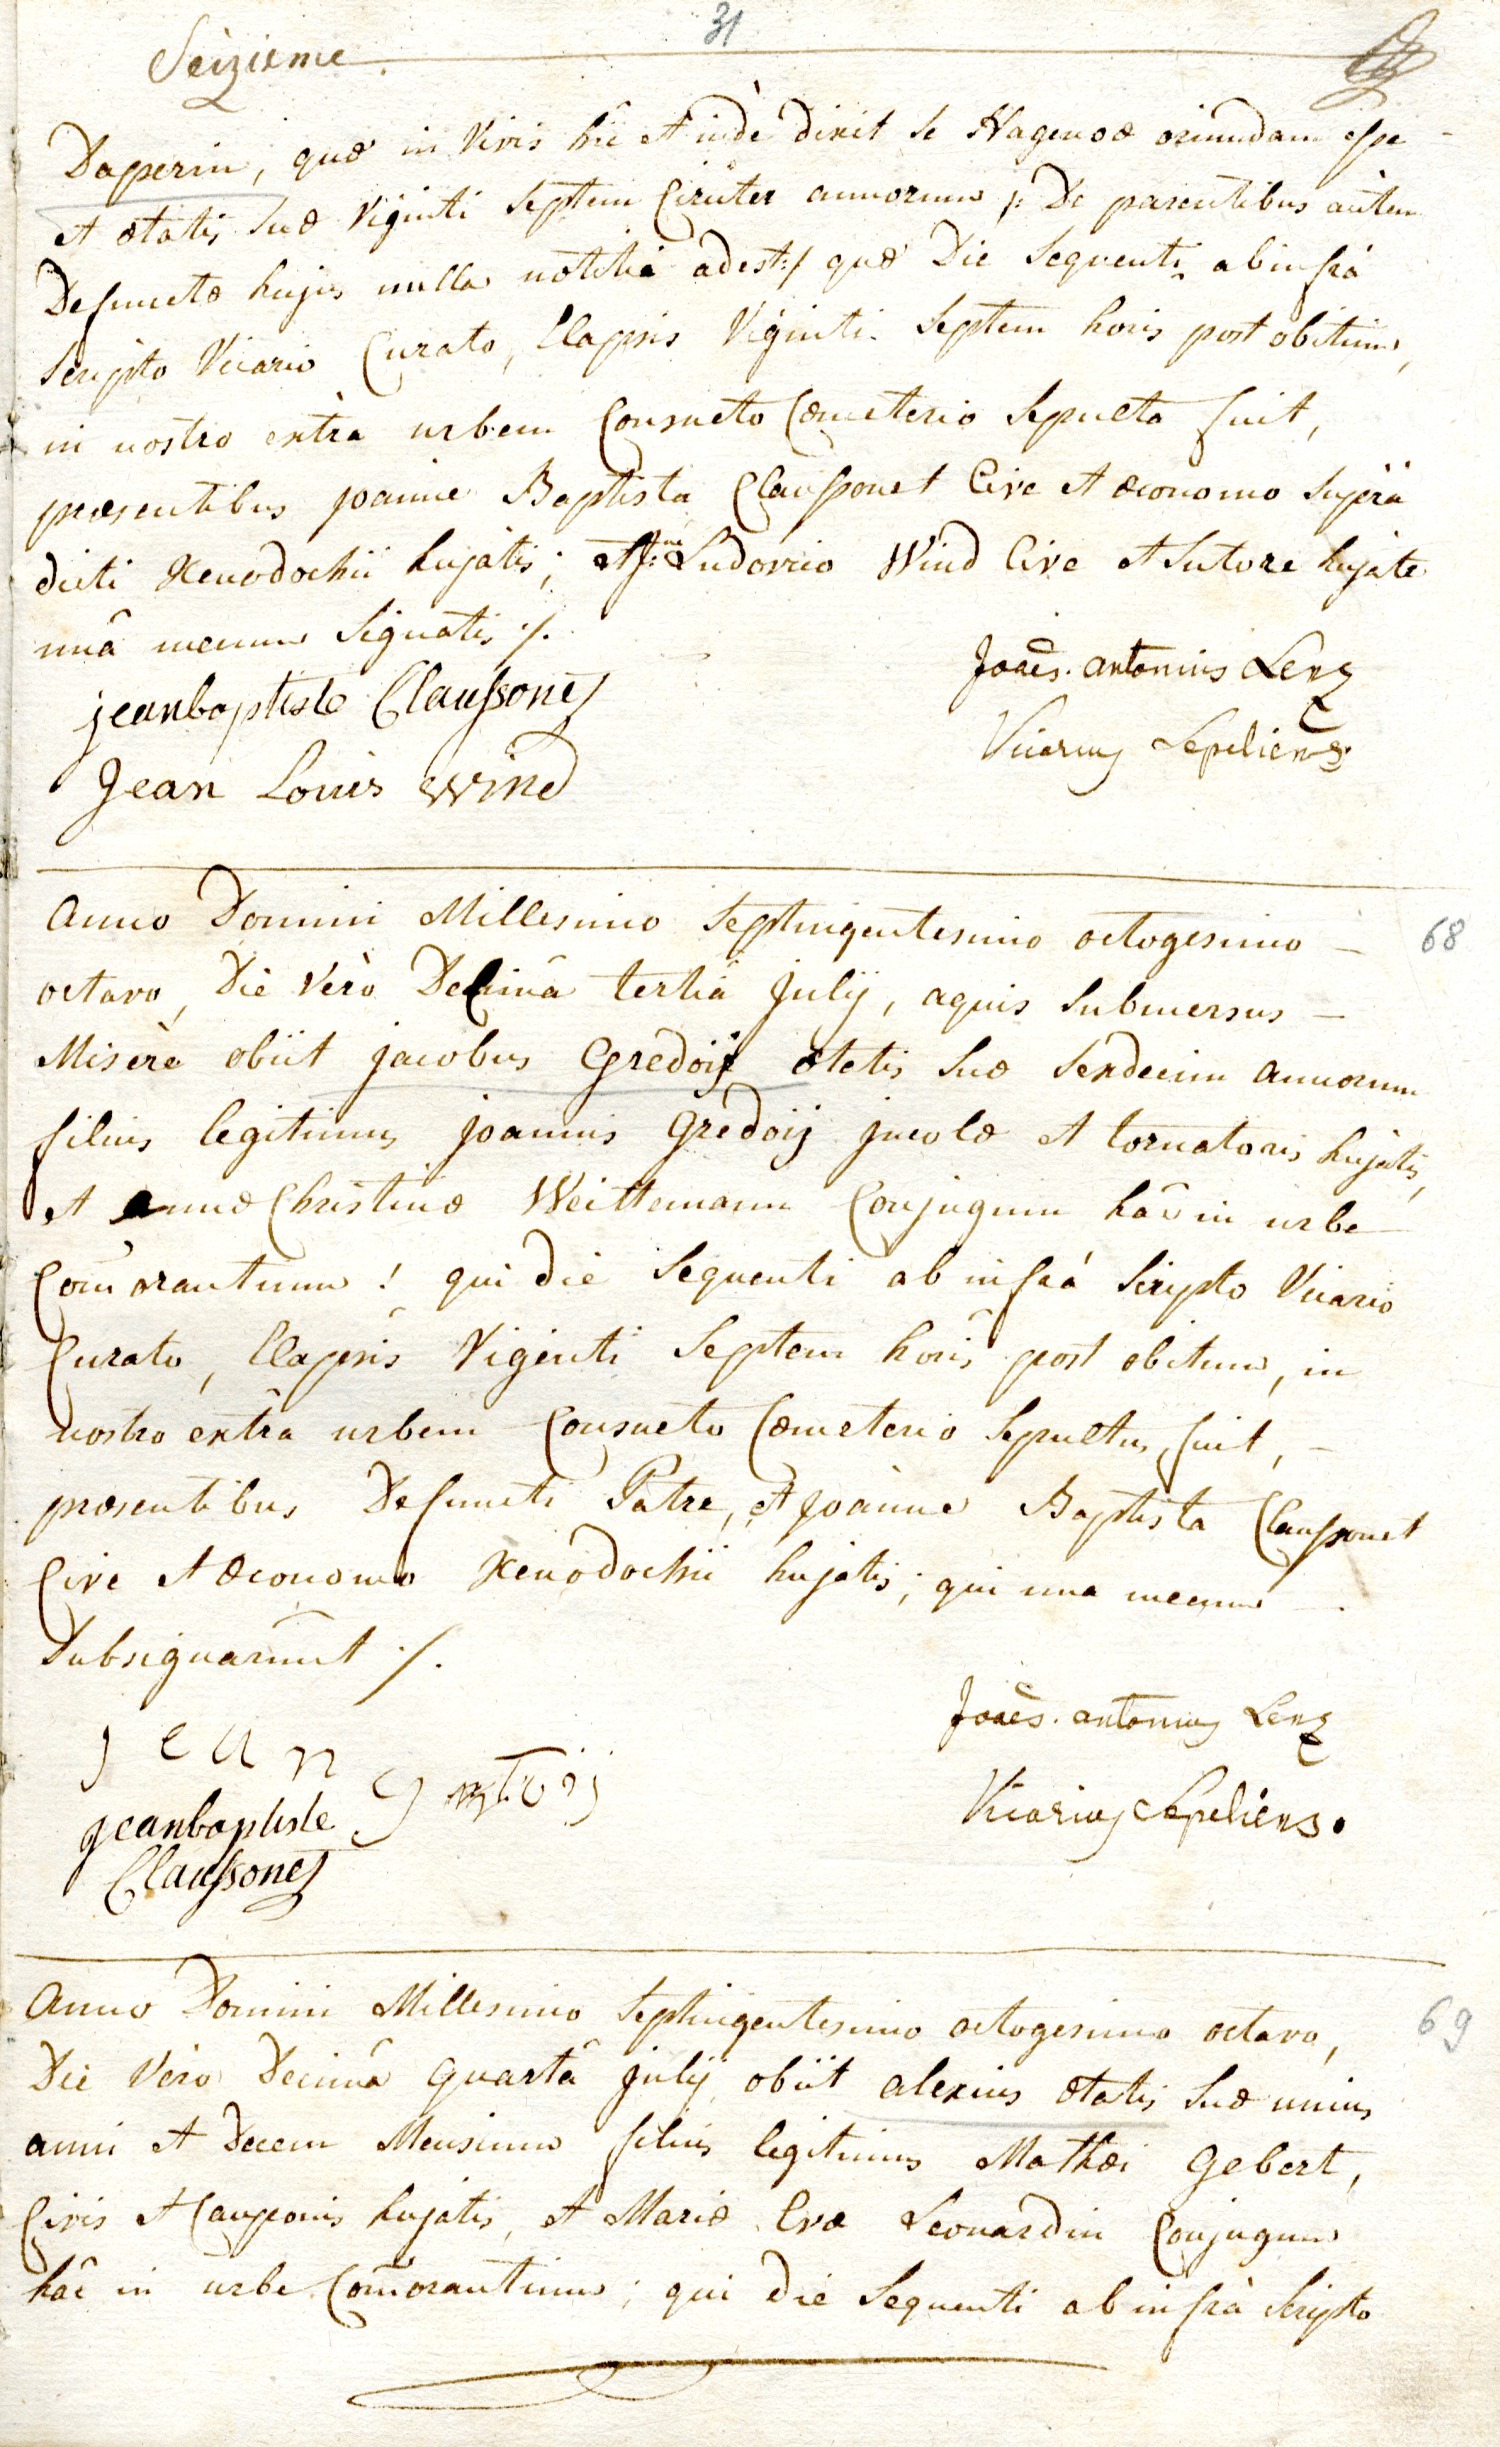 31
Seizieme.
Dasperin, quæ in vivis hîc et indè dixit se Hagenoæ oriundam esse
et ætatis suæ viginti septem Circiter annorum /: De parentibus autem
Defunctæ hujus nulla notitia adest :/ quæ Die sequenti ab infrà
scripto Vicario Curato, Elapsis Viginti septem horis post obitum,
in nostro extra urbem Consueto Cœmeterio sepulta fuit,
præsentibus joanne Baptista Claussonet Cive et œconomo suprà
dicti Xenodochii hujatis; et J:ne Ludovico Wind Cive et sutore hujate
unâ mecum signatis ./.
Joaes. antonius Lenz
jeanbaptiste Claussonet
Vicarius Sepeliens.
Jean Louis Wind
Anno Domini Millesimo septingentesimo octogesimo –
68
octavo, Die verò Decimâ tertiâ julij, aquis submersus –
Misère obiit jacobus Gredoij ætatis suæ sexdecim annorum
filius legitimus joannis Gredoij jncolæ et tornatoris hujatis,
et annæ Christinæ Weittemann Conjugum hâc in urbe
Com̃orantium ! qui die sequenti ab infrá scripto Vicario
Curato, Elapsis Viginti septem horis post obitum, in
nostro extra urbem Consueto Cœmeterio sepultus fuit, –
præsentibus Defuncti Patre, et joanne Baptista Claussonet
Cive et œconomo Xenodochii hujatis; qui una mecum
Subsignarunt ./.
Joaes. antonius Lenz
jean
jeanbaptiste
Vicarius Sepeliens.
Claussonet
Anno Domini Millesimo septingentesimo octogesimo octavo,
69
Die Verò Decimâ quartâ julij obiit alexius ætatis suæ unius
anni et Decem Mensium filius legitimus Mathæi Gebert,
Civis et Cauponis hujatis, et Mariæ Evæ Leonardin Conjugum
hâc in urbe Com̃orantium; qui die sequenti ab infrà scripto